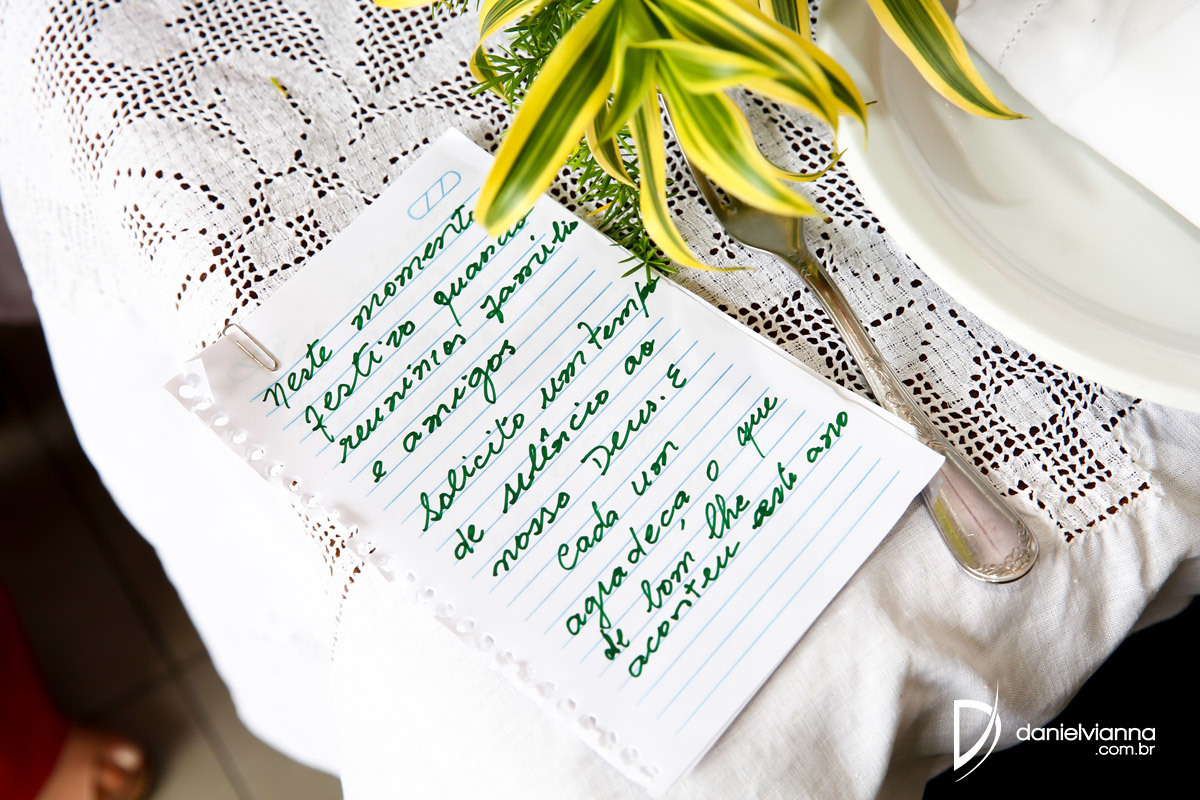 Neste momento
festivo quando
reunimos família
e amigos
Solicito um tempo
de silêncio ao
nosso Deus. E
cada um
agradeça o que
de bom lhe
aconteu este ano
danielvianna
.com.br